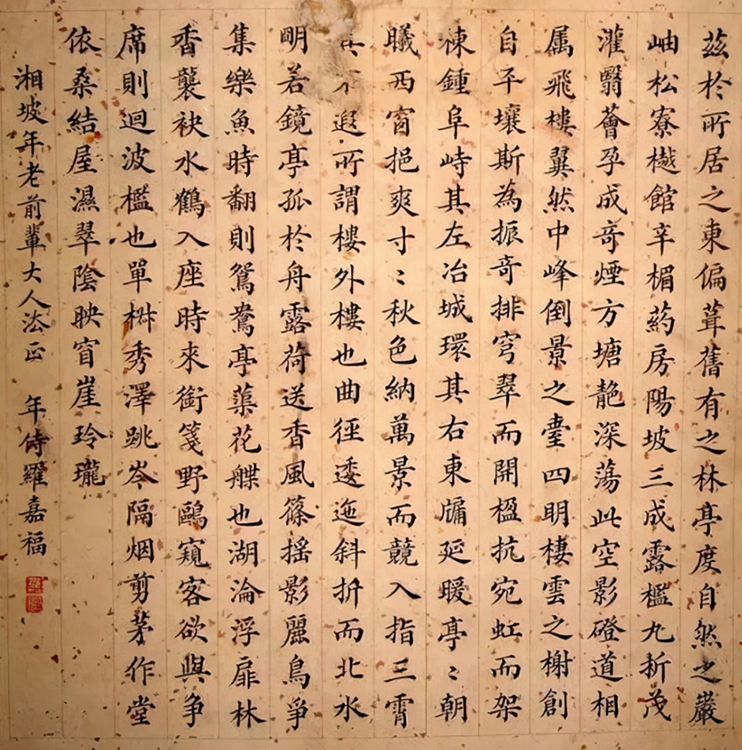 茲於所居之東偏葺舊有之林亭度自然之巖
岫松寮樾館辛楣葯房陽坡三成露檻九折茂
灌薈孕成奇煙方塘靘深蕩此空影磴道相
属飛樓翼然中峰倒景之臺四明棲雲之榭創
自平壤斯為振奇排穹翠而開楹抗宛虹而架
棟鍾阜峙其左冶城環其右東牖延暖亭〻朝
曦西窗挹爽寸〻秋色納萬景而競入指三霄
其不遐所謂樓外樓也曲徑逶迤斜折而北水
明若鏡亭孤於舟露荷送香風篠搖影麗鳥爭
集樂魚時翻則鴛鴦亭蕖花艓也湖淪浮扉林
香襲袂水鶴入座時來銜箋野鷗窺客欲與争
席則迴波檻也單椒秀澤跳岑隔烟剪茅作堂
依桑結屋濕翠陰映窅崖玲瓏
湘坡年老前輩大人法正 年侍羅嘉福